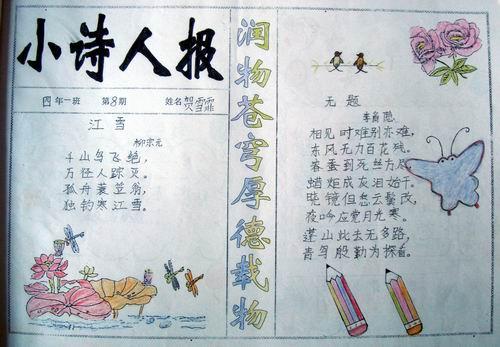 小诗人报
四年一班 第8期 姓名 贺雪霏
江雪
柳宗元
千山鸟飞绝,
万径人踪灭。
孤舟蓑笠翁,
独钓寒江雪。
润物苍穹厚德载物
无题
李商隐
相见时难别亦难,
东风无力百花残。
春蚕到死丝方尽
蜡炬成灰泪始干。
晓镜但云鬓
夜吟应觉月光寒。
蓬山此去无多路,
青鸟殷勤为探看。